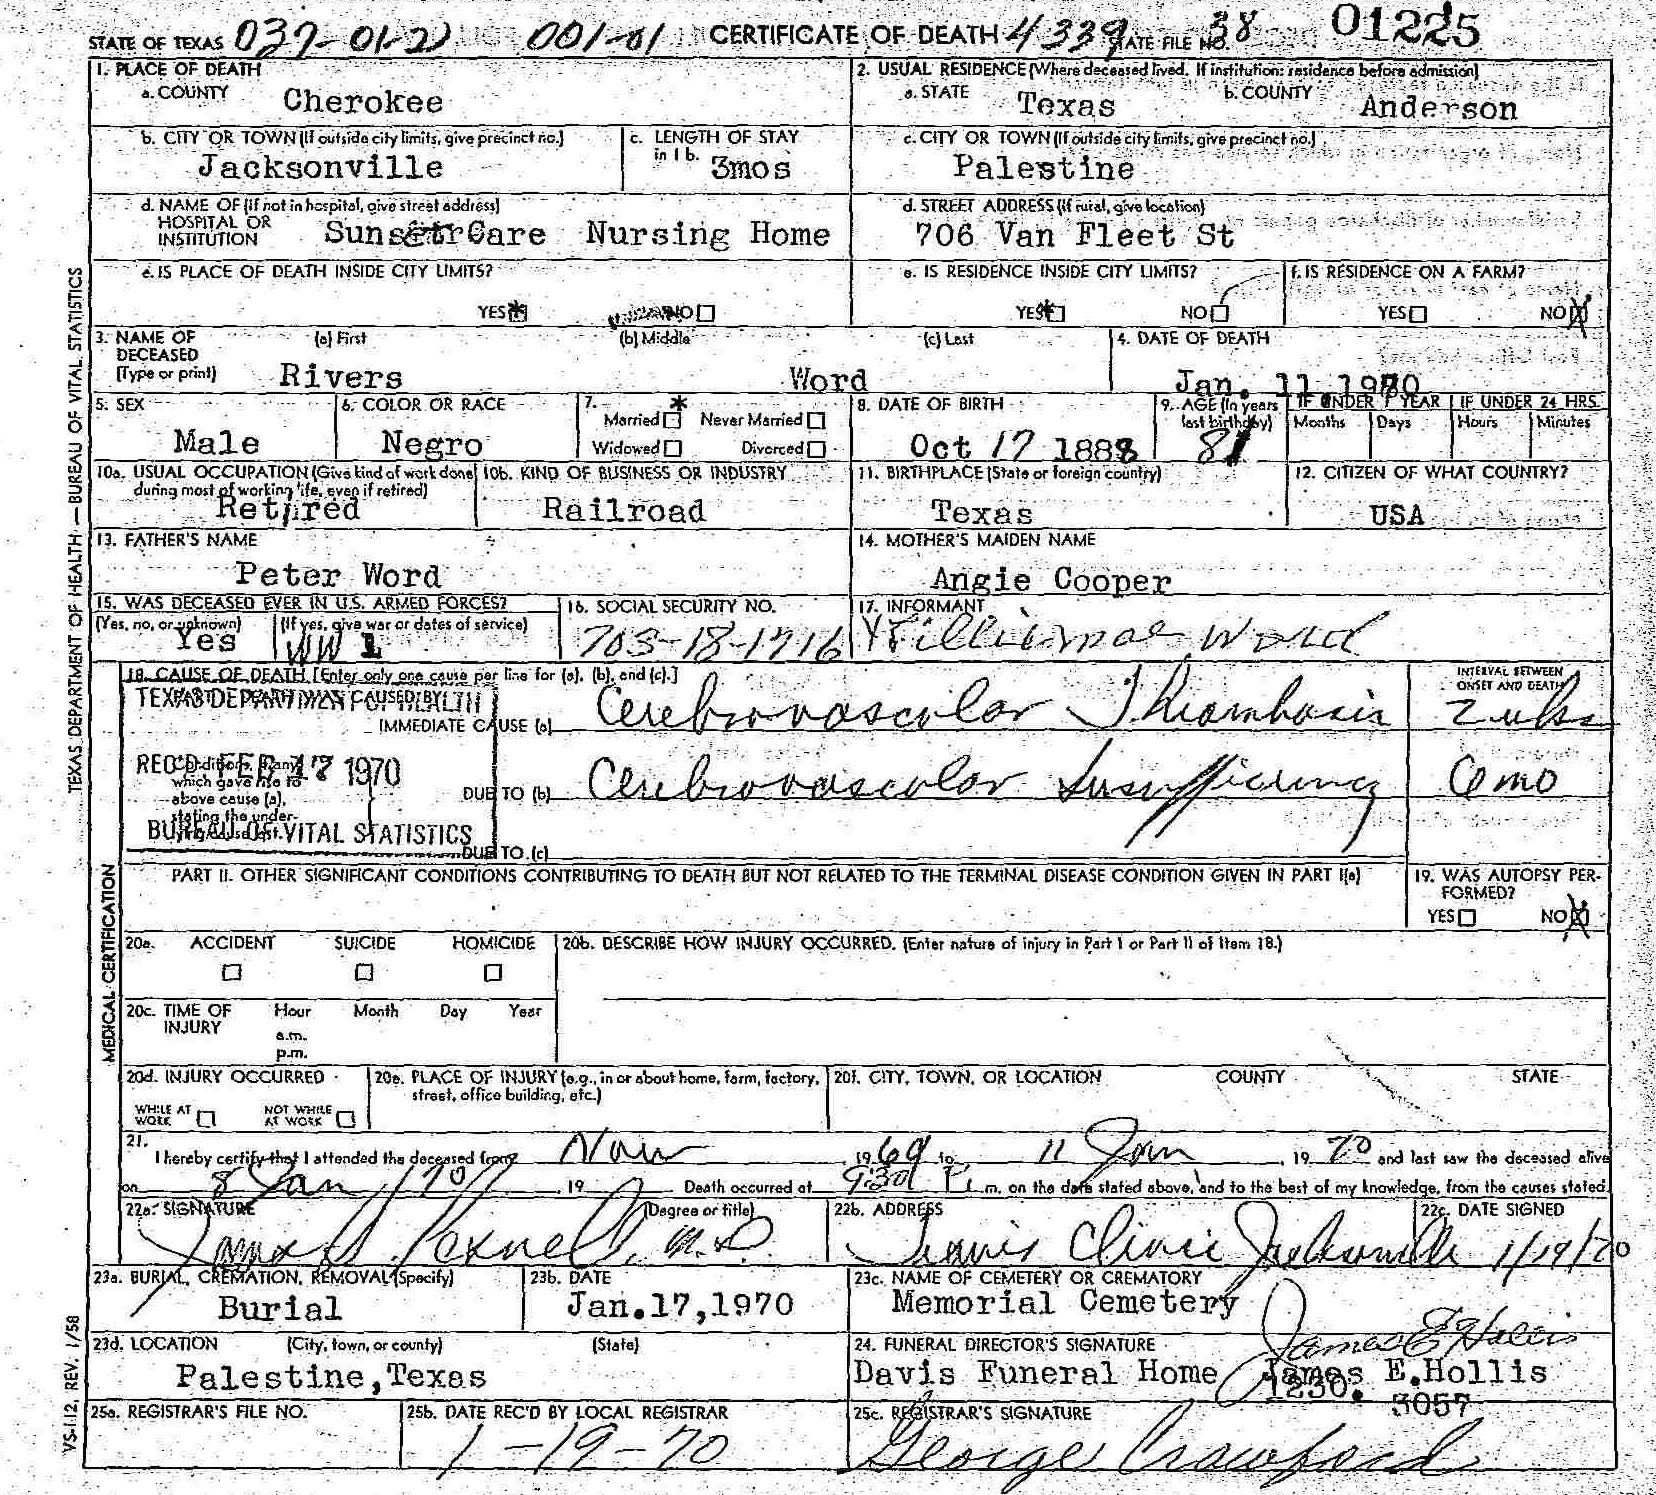 STATE OF TEXAS 037-01-2 001-01 CERTIFICATE OF DEATH 4339 STATE FILE NO. 38 01225
1. PLACE OF DEATH
a. COUNTY Cherokee
2. USUAL RESIDENCE (Where deceased lived. If institution: residence before admission)
a. STATE Texas b. COUNTY Anderson
b. CITY OR TOWN (If outside city limits, give precinct no.) Jacksonville
c. LENGTH OF STAY in 1 b. 3mos
c. CITY OR TOWN (If outside city limits, give precinct no.) Palestine
d. NAME OF (If not in hospital, give street address) HOSPITAL OR INSTITUTION Sunset Care Nursing Home
d. STREET ADDRESS (If rural, give location) 706 Van Fleet St
e. IS PLACE OF DEATH INSIDE CITY LIMITS?
YES NO
e. IS RESIDENCE INSIDE CITY LIMITS?
YES NO
f. IS RESIDENCE ON A FARM?
YES NO X
3. NAME OF DECEASED (Type or print)
(a) First (b) Middle (c) Last
Rivers Word
4. DATE OF DEATH
Jan. 11 1970
5. SEX Male
6. COLOR OR RACE Negro
7. Married Never Married
Widowed Divorced
8. DATE OF BIRTH Oct 17 1888
9. AGE (In years last birthday) 81
IF UNDER 1 YEAR Months Days
IF UNDER 24 HRS. Hours Minutes
10a. USUAL OCCUPATION (Give kind of work done during most of working life, even if retired) Retired
10b. KIND OF BUSINESS OR INDUSTRY Railroad
11. BIRTHPLACE (State or foreign country) Texas
12. CITIZEN OF WHAT COUNTRY? USA
13. FATHER'S NAME Peter Word
14. MOTHER'S MAIDEN NAME Angie Cooper
15. WAS DECEASED EVER IN U.S. ARMED FORCES?
(Yes, no, or unknown) Yes (If yes, give war or dates of service) WW 1
16. SOCIAL SECURITY NO. 703-18-1716
17. INFORMANT Williemae Word
18. CAUSE OF DEATH [Enter only one cause per line for (a), (b), and (c).]
PART I. DEATH WAS CAUSED BY:
TEXAS DEPARTMENT OF HEALTH
IMMEDIATE CAUSE (a) Cerebrovascolar Thrombosis
INTERVAL BETWEEN ONSET AND DEATH
2 wks
REC'D FEB 17 1970
Conditions, if any, which gave rise to above cause (a), stating the underlying cause last.
DUE TO (b) Cerebrovascolar Insufficiency 6 mo
BUREAU OF VITAL STATISTICS
DUE TO (c)
PART II. OTHER SIGNIFICANT CONDITIONS CONTRIBUTING TO DEATH BUT NOT RELATED TO THE TERMINAL DISEASE CONDITION GIVEN IN PART I(a)
19. WAS AUTOPSY PERFORMED?
YES NO X
20a. ACCIDENT SUICIDE HOMICIDE
20b. DESCRIBE HOW INJURY OCCURRED. (Enter nature of injury in Part I or Part II of Item 18.)
20c. TIME OF INJURY
Hour Month Day Year
a.m.
p.m.
20d. INJURY OCCURRED
WHILE AT WORK NOT WHILE AT WORK
20e. PLACE OF INJURY (e.g., in or about home, farm, factory, street, office building, etc.)
20f. CITY, TOWN, OR LOCATION COUNTY STATE
21.
I hereby certify that I attended the deceased from Nov 1969 to 11 Jan, 1970 and last saw the deceased alive
on 8 Jan 1970, 19 Death occurred at 9:30 P.m. on the date stated above, and to the best of my knowledge, from the causes stated.
22a. SIGNATURE (Degree or title) M.D.
22b. ADDRESS Travis Clinic Jacksonville
22c. DATE SIGNED 1/19/70
23a. BURIAL, CREMATION, REMOVAL (Specify) Burial
23b. DATE Jan.17,1970
23c. NAME OF CEMETERY OR CREMATORY Memorial Cemetery
23d. LOCATION (City, town, or county) (State)
Palestine,Texas
24. FUNERAL DIRECTOR'S SIGNATURE James E Hollis
Davis Funeral Home James E.Hollis
1230. 3057
25a. REGISTRAR'S FILE NO.
25b. DATE REC'D BY LOCAL REGISTRAR 1-19-70
25c. REGISTRAR'S SIGNATURE George Crawford
TEXAS DEPARTMENT OF HEALTH — BUREAU OF VITAL STATISTICS
MEDICAL CERTIFICATION
VS-112, REV. 1/58